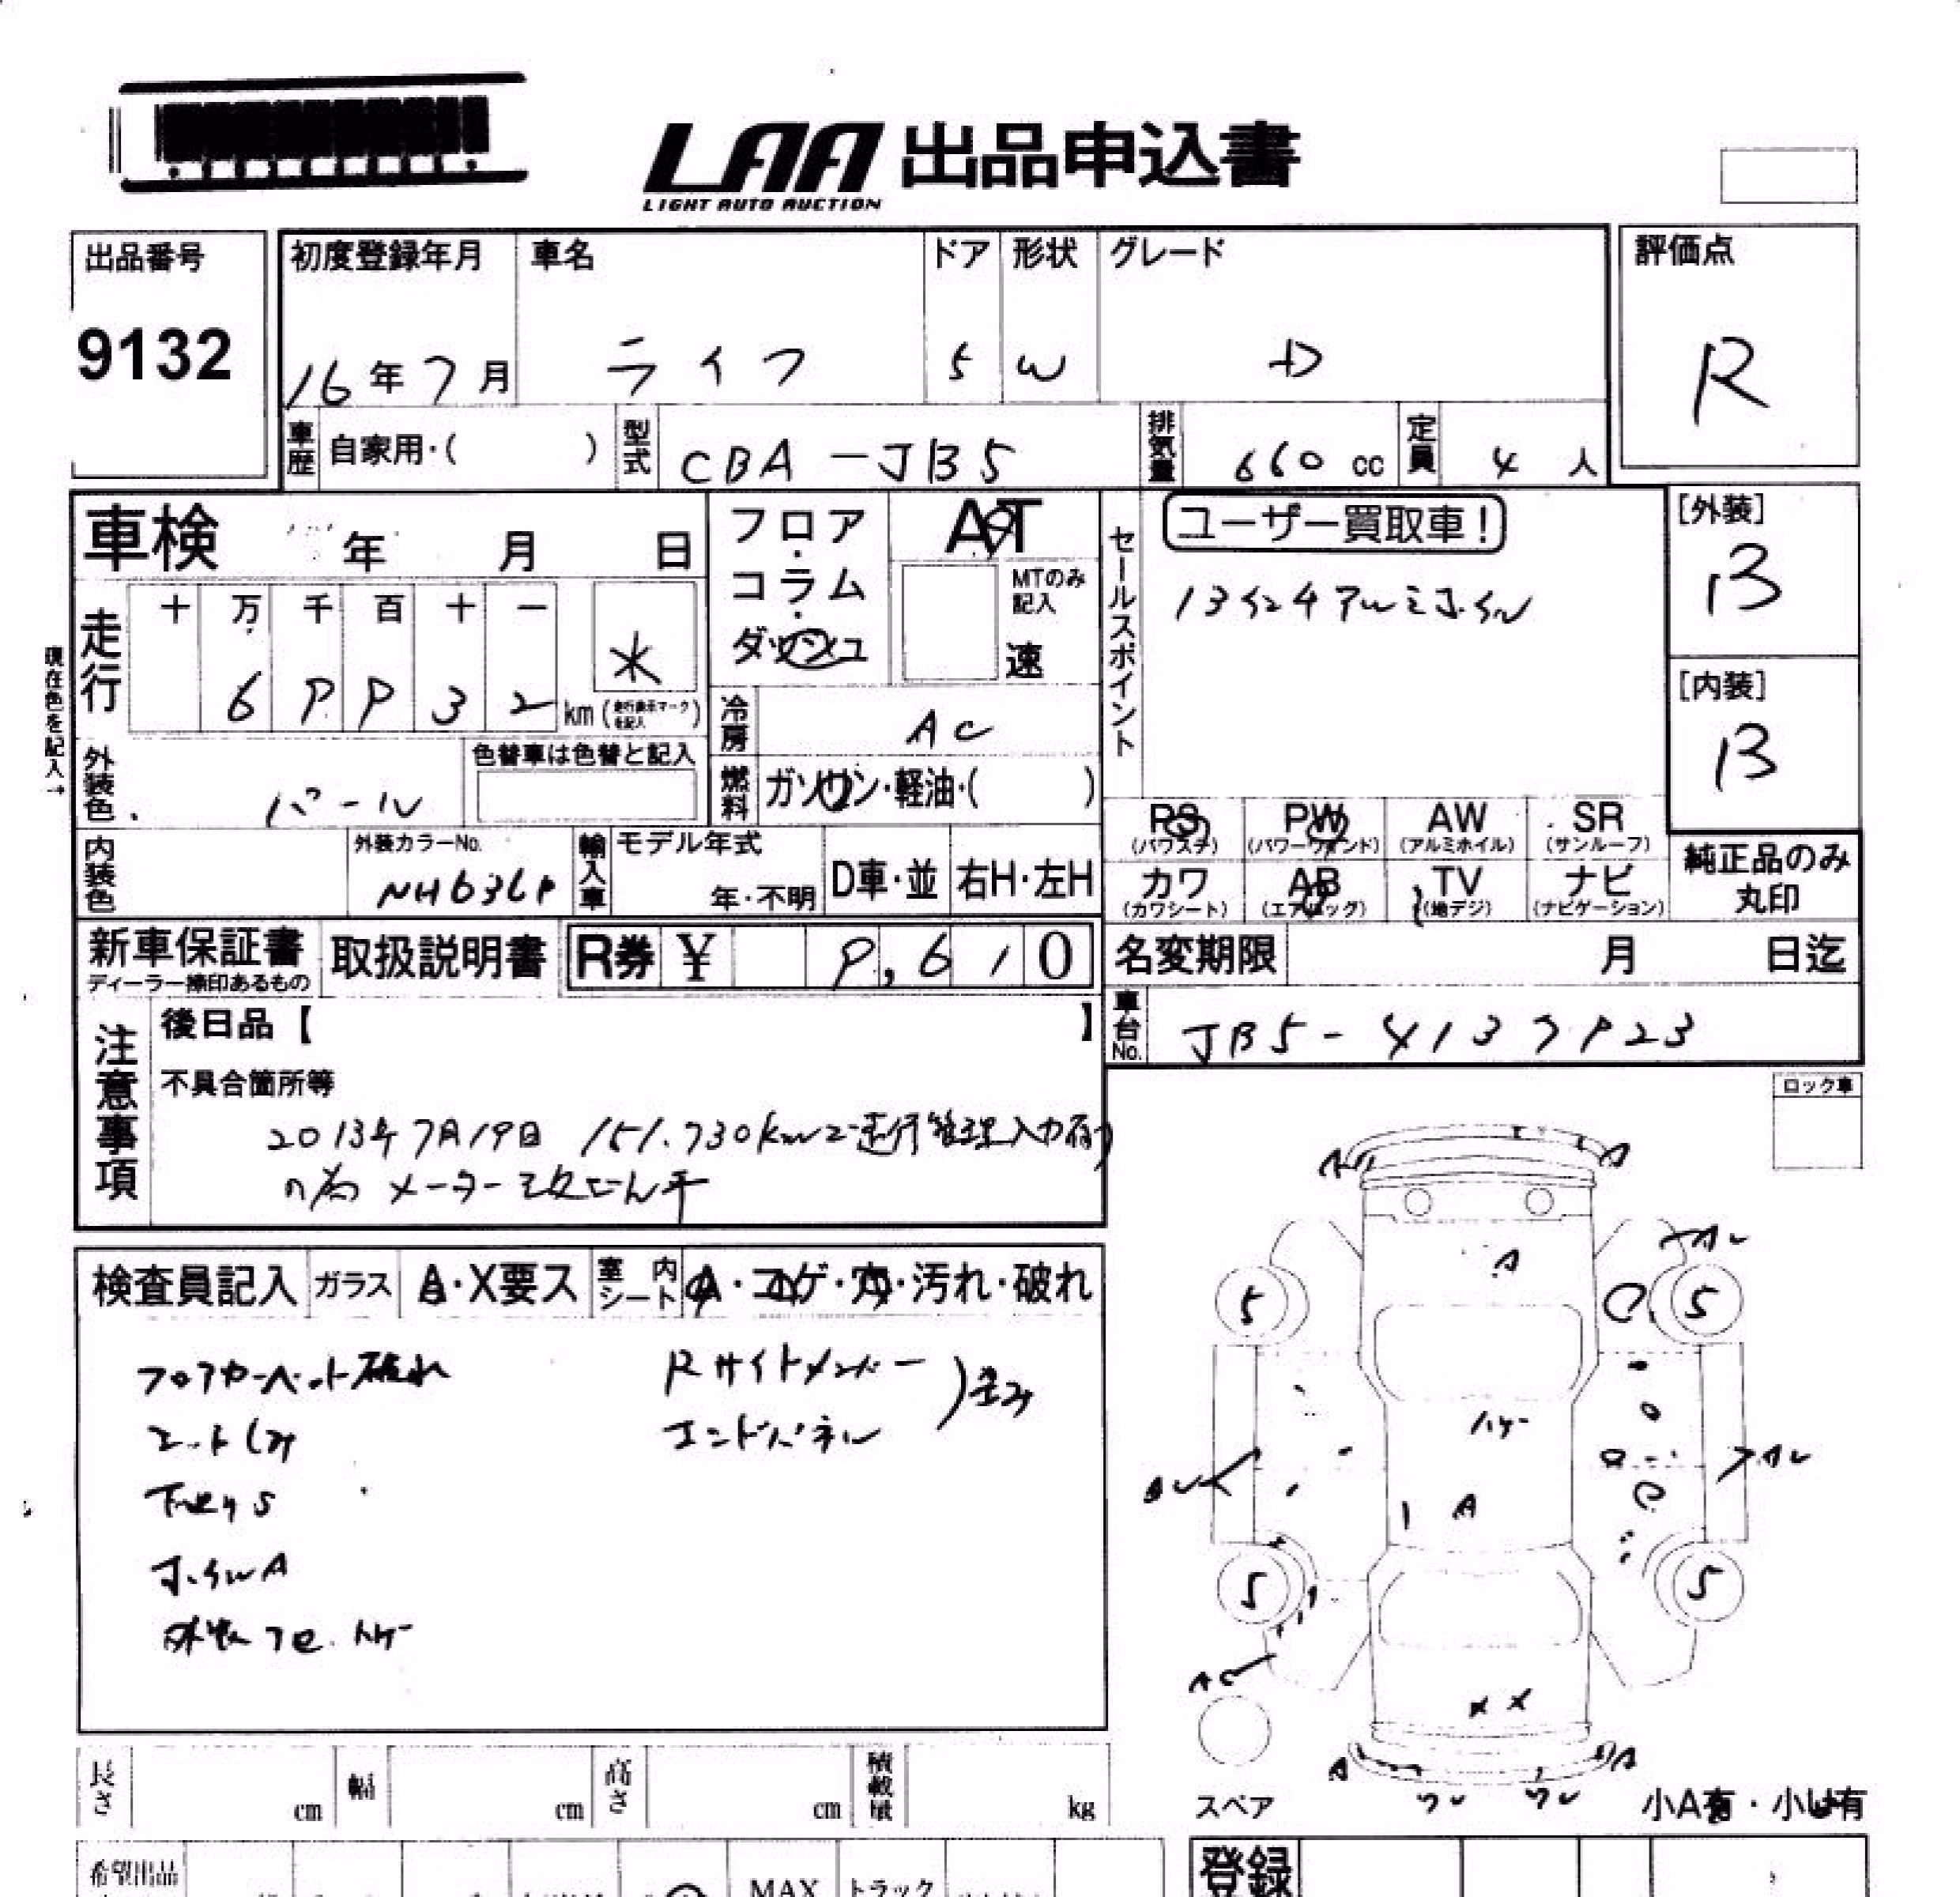 LAA 出品申込書
LIGHT AUTO AUCTION
出品番号
9132
初度登録年月
16年7月
車名
ライフ
ドア
5
形状
W
グレード
D
評価点
R
車歴
自家用・( )
型式
CBA-JB5
排気量
660 cc
定員
4 人
車検 年 月 日
走行
十 万 千 百 十 一
6 9 9 3 2 km
*
(走行表示マークを記入)
現在色を記入→
外装色
パール
色替車は色替と記入
内装色
外装カラーNo.
NH636P
輸入車
モデル年式
年・不明
D車・並
右H・左H
フロア・コラム・ダッシュ
AT
MTのみ記入
速
冷房
AC
燃料
ガソリン・軽油・( )
セールスポイント
ユーザー買取車!
13インチアルミホイル
[外装]
B
[内装]
B
PS
(パワステ)
PW
(パワーウインド)
AW
(アルミホイル)
SR
(サンルーフ)
カワ
(カワシート)
AB
(エアバッグ)
TV
(地デジ)
ナビ
(ナビゲーション)
純正品のみ丸印
新車保証書
ディーラー捺印あるもの
取扱説明書
R券 ¥ 9,610
名変期限 月 日迄
車台No.
JB5-4137923
注意事項
後日品【 】
不具合箇所等
2013年7月19日 151.730kmで走行管理入力有り
の為 メーター改ざん車
ロック車
検査員記入
ガラス
A・X要ス
室内シート
A・コゲ・穴・汚れ・破れ
フロアカーペット破れ
シートしみ
下廻りS
ホイルA
外装コセ.ハゲ
Rサイドメンバー
エンドパネル
)歪み
A
A
A
AU
5
5
ハゲ
AU
AU
A
5
5
AC
X X
A
A
スペア
小A有・小U有
長さ cm
幅 cm
高さ cm
積載量 kg
希望出品
MAX
トラック
登録